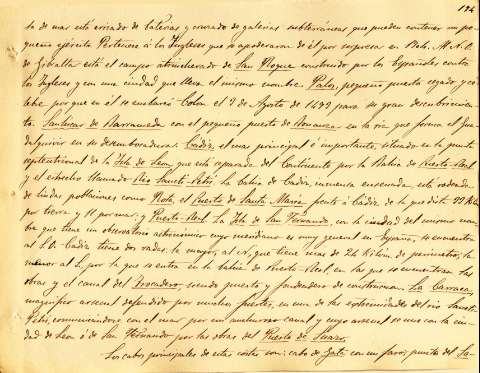 194
to de mar está erizado de baterías y cruzado de galerías subterráneas que pueden contener un pe-
queño ejército. Pertenece á los Ingleses que se apoderaron de él por sorpresa en 1704. Al N.O. de
Gibraltar está el campo atrincherado de San Roque construido por los Españoles contra
los Ingleses y con una ciudad que lleva el mismo nombre. Palos, pequeño puerto cegado, y cé-
lebre por que en él se embarcó Colon el 2 de Agosto de 1492 para su gran descubrimien-
to. Sanlucar de Barrameda con el pequeño puerto de Bonanza en la ria que forma el Gua-
dalquivir en su desembocadura. Cadiz, el mas principal é importante, situado en la punta
septentrional de la Isla de Leon, que está separada del Continente por la Bahia de Puerto-Real
y el estrecho llamado Rio Sancti-Petri. La bahia de Cadiz, inmensa ensenada, está rodeada
de lindas poblaciones como Rota, el Puerto de Santa Maria frente á Cadiz, de la que dista 33 Kilm
por tierra y 11 por mar, y Puerto-Real. La Isla de San Fernando, con la ciudad del mismo nom-
bre que tiene un observatorio astronómico cuyo meridiano es muy general en España, se encuentra
al S.O. Cadiz tiene dos radas: la mayor, al N, que tiene mas de 24 Kilóm. de perímetro, la
menor al S, por la que se entra en la bahia de Puerto-Real, en las que se encuentran las
obras y el canal del Trocadero, siendo puerto y fondeadero de construccion. La Carraca,
magnífico arsenal defendido por muchos fuertes, en una de las extremidades del rio Sancti-
Petri, comunicándose con el mar por un anchuroso canal y cuyo arsenal se une con la ciu-
dad de Leon ó de San Fernando por las obras del Puente de Suazo.
Los cabos principales de estas costas son: cabo de Gata con un faro; punta del Sa-